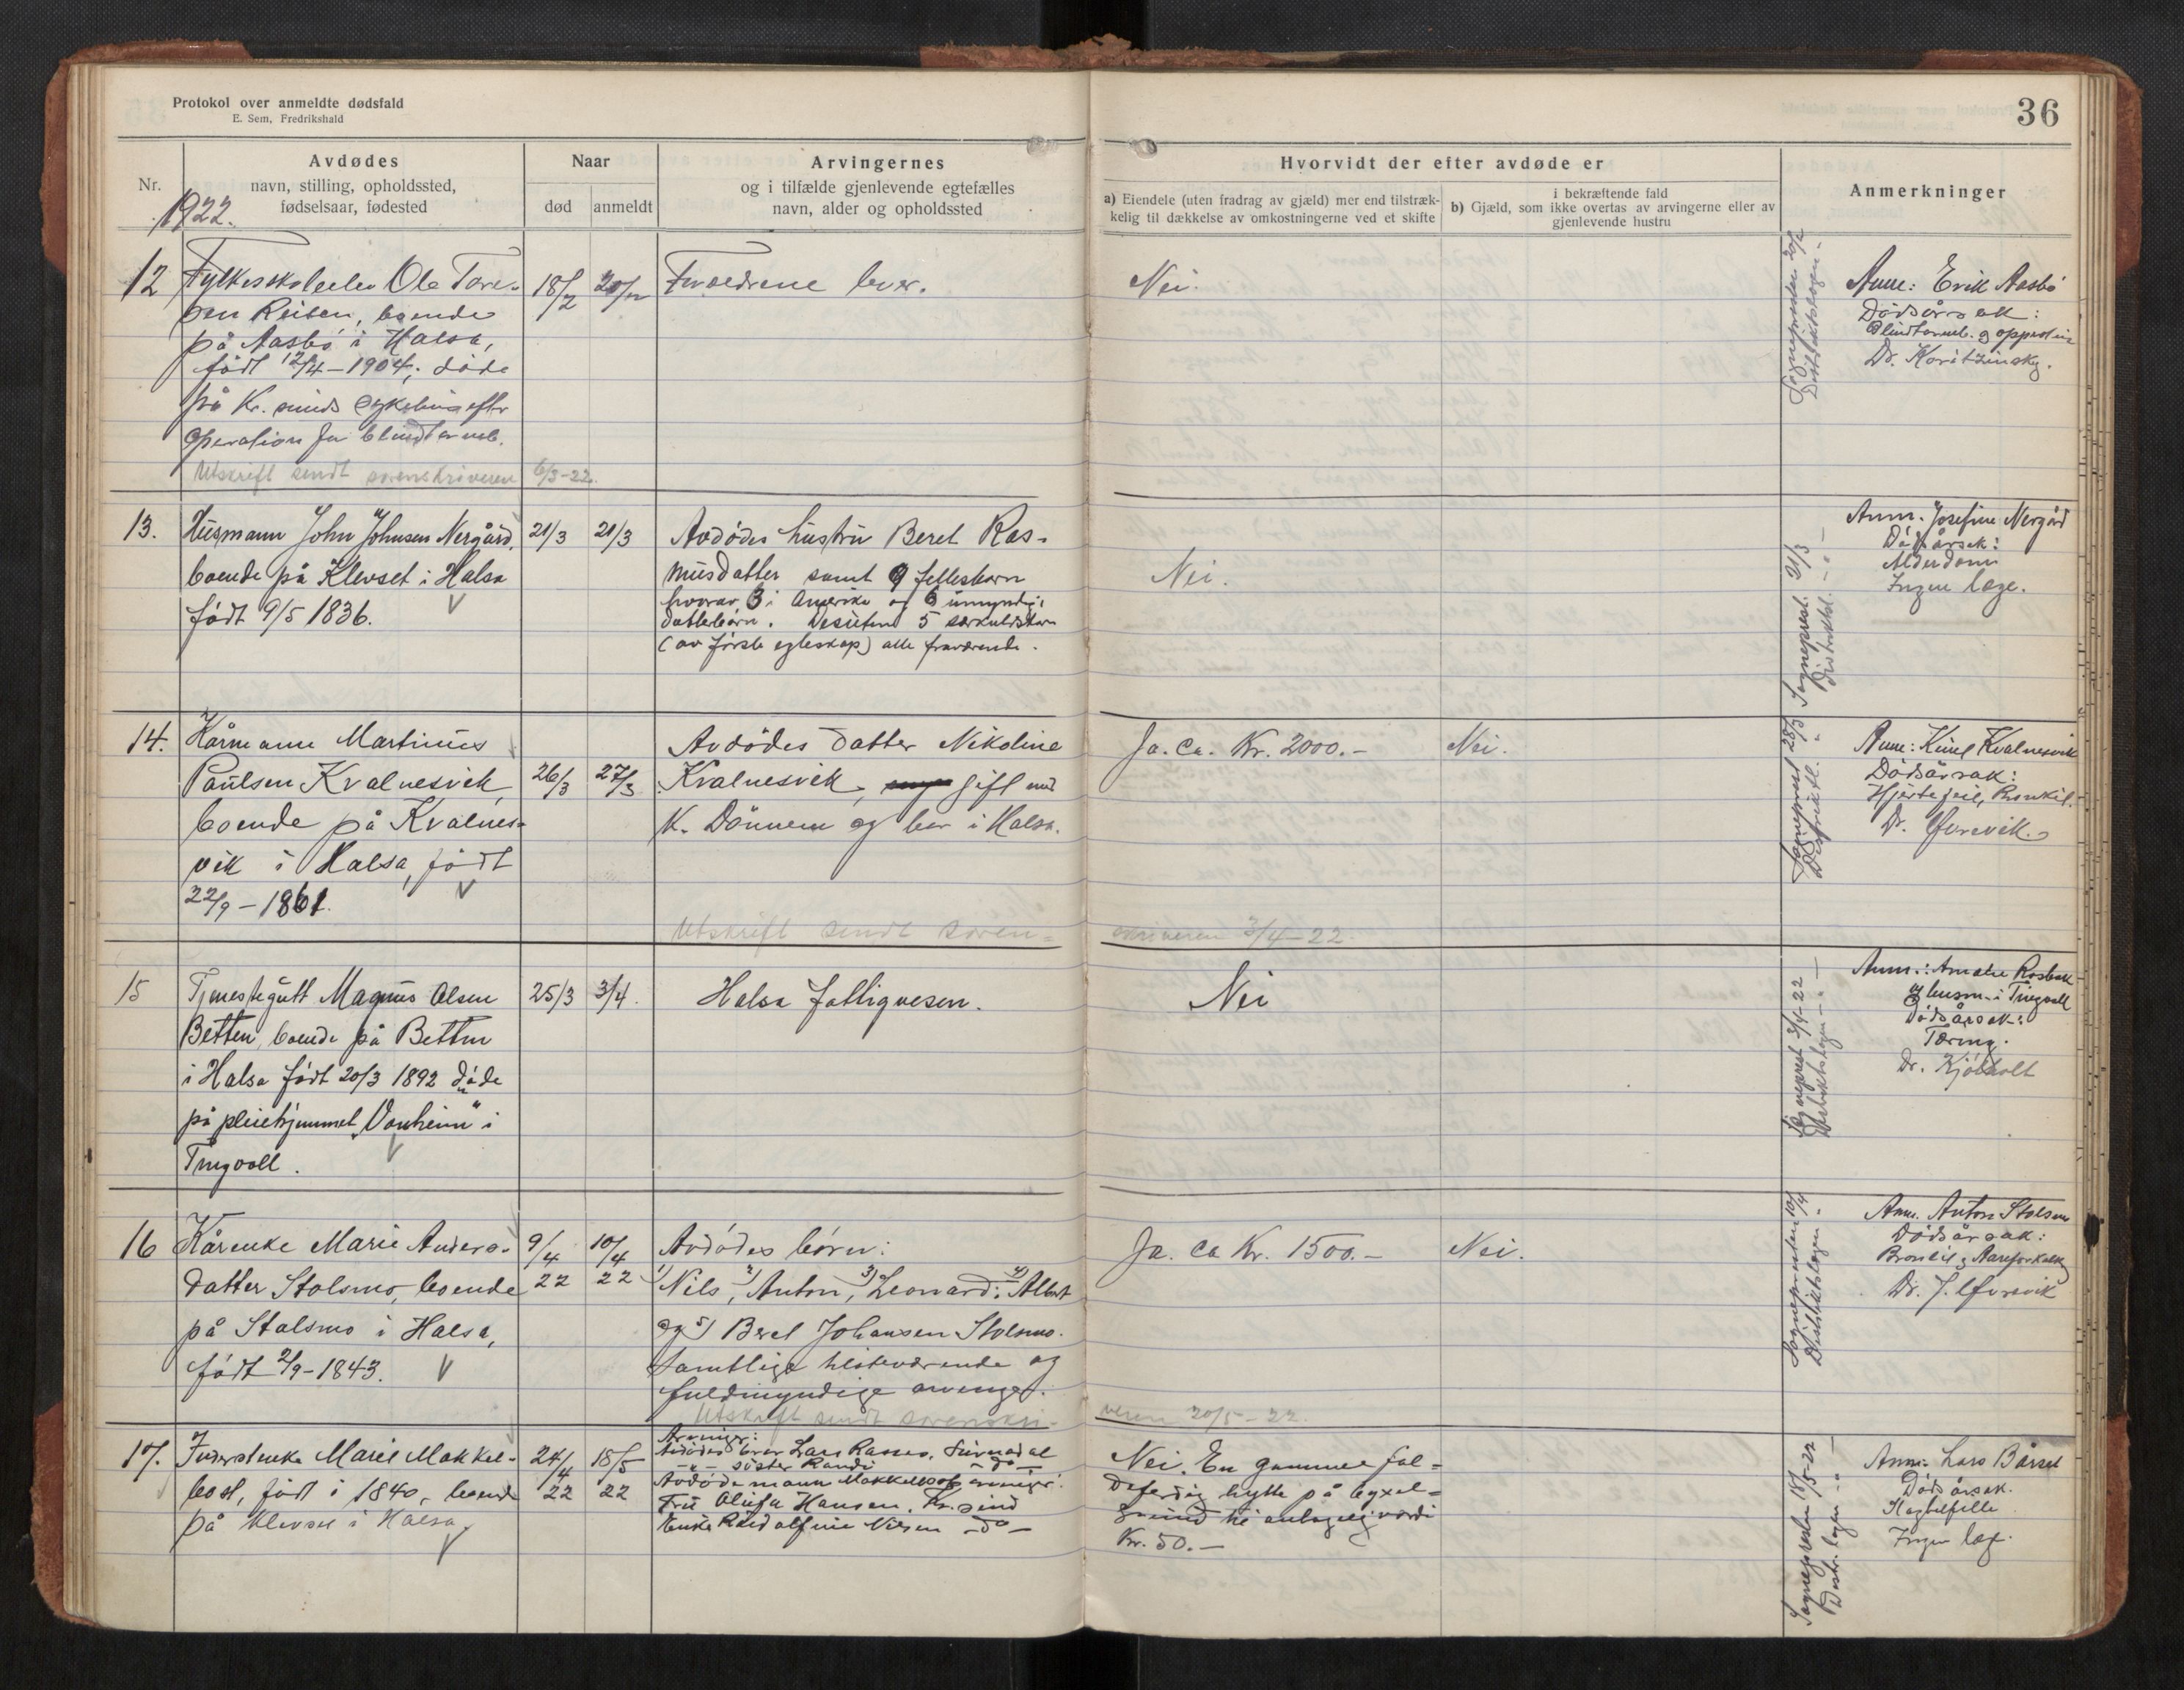 Protokol over anmeldte dødsfald
E. Sem, Fredrikshald
36
Nr.
Avdødes
navn, stilling, opholdssted,
fødselsaar, fødested
1922.
Naar
død
anmeldt
Arvingernes
og i tilfælde gjenlevende egtefælles
navn, alder og opholdssted
Hvorvidt der efter avdøde er
a) Eiendele (uten fradrag av gjæld) mer end tilstræk-
kelig til dækkelse av omkostningerne ved et skifte
i bekræftende fald
b) Gjæld, som ikke overtas av arvingerne eller av
gjenlevende hustru
Anmerkninger
12
Fylkesskoleelev Ole Tore-
sen Reiten, boende
på Aasbö i Halsa,
födt 12/4-1904, döde
på Kr.sunds sykehus efter
operation for blindtarmb.
Utskrift sendt sorenskriveren 6/3-22.
18/2
20/2
Forældrene lever.
Nei.
Sogneprester 20/2
Distriktslægen -
Anm: Erik Aasbö
Dödsårsak:
Blindtarmb. og operation
Dr. Koritzinsky.
13.
Husmann John Johnsen Nergård,
boende på Klevset i Halsa
födt 9/5 1836.
21/3
21/3
Avdödes hustru Beret Ras-
musdatter samt 9 fellesbarn
hvorav 3 i Amerika og 6 umyndige
datterbörn. Desuten 5 særkuldsbarn
(av förste egteskap) alle fraværende.
Nei.
Sogneprest. 21/3
Distriktsl. -"-
Anm. Josefine Nergård
Dödsårsak:
Alderdom
Ingen læge.
14.
Kårmann Martinus
Paulsen Kvalnesvik,
boende på Kvalnes-
vik i Halsa, födt
22/9-1861.
26/3
27/3
Avdödes datter Nikoline
Kvalnesvik, gift med
K. Dönnem og bor i Halsa.
Utskrift sendt soren-
skriveren 3/4-22.
Ja. ca. Kr. 2000.-
Nei.
Sogneprest 28/3
Distriktsl. "
Anm: Kvalnesvik
Dödsårsak:
Hjertefeil, Bronkit.
Dr.
15
Tjenestegutt Magnus Olsen
Betten, boende på Betten
i Halsa födt 20/3 1892 döde
på pleiehjemmet "Vonheim" i
Tingvoll.
25/3
3/4.
Halsa fattigvesen.
Nei
Sogneprest 3/4-22
Distriktslægen -"-
Anm.: Amalie
husm. i Tingvoll
Dödsårsak:
Tæring.
Dr. Kjölholt
16
Kårenke Marie Anders-
datter Stolsmo, boende
på Stolsmo i Halsa,
födt 2/9-1843.
9/4
22
10/4
22
Avdödes börn:
1) Nils, 2) Anton, 3) Leonard, 4) Albert
og 5) Beret Johansen Stolsmo.
Samtlige tilstedværende og
fuldmyndige arvinger.
Utskrift sendt sorenskri-
veren 20/5-22.
Ja. ca Kr. 1500.-
Nei.
Sognepresten 10/4
Distriktslægen "
Anm. Anton Stolsmo
Dödsårsak:
Bronkit, Aareforkalkn
Dr. J.
17.
Marie Makkel-
bost, födt i 1840, boende
på Klevset i Halsa.
24/4
22
18/5
22
Arvinger:
Avdödes bror Lars Surnadal
-"- söster Randi -do-
Avdöde mann Makkelbost arvinger:
Fru Olufa Hansen, Kr.sund
Enke Nilsen -do-
Nei. En gammel fal-
deferdig hytte på byxel-
grund til antagelig værdi
Kr. 50.-
Sognepresten 18/5-22
Distr. lægen -"-
Anm. Lars Bårset
Dödsårsak.
Slagtilfelle
Ingen læge.